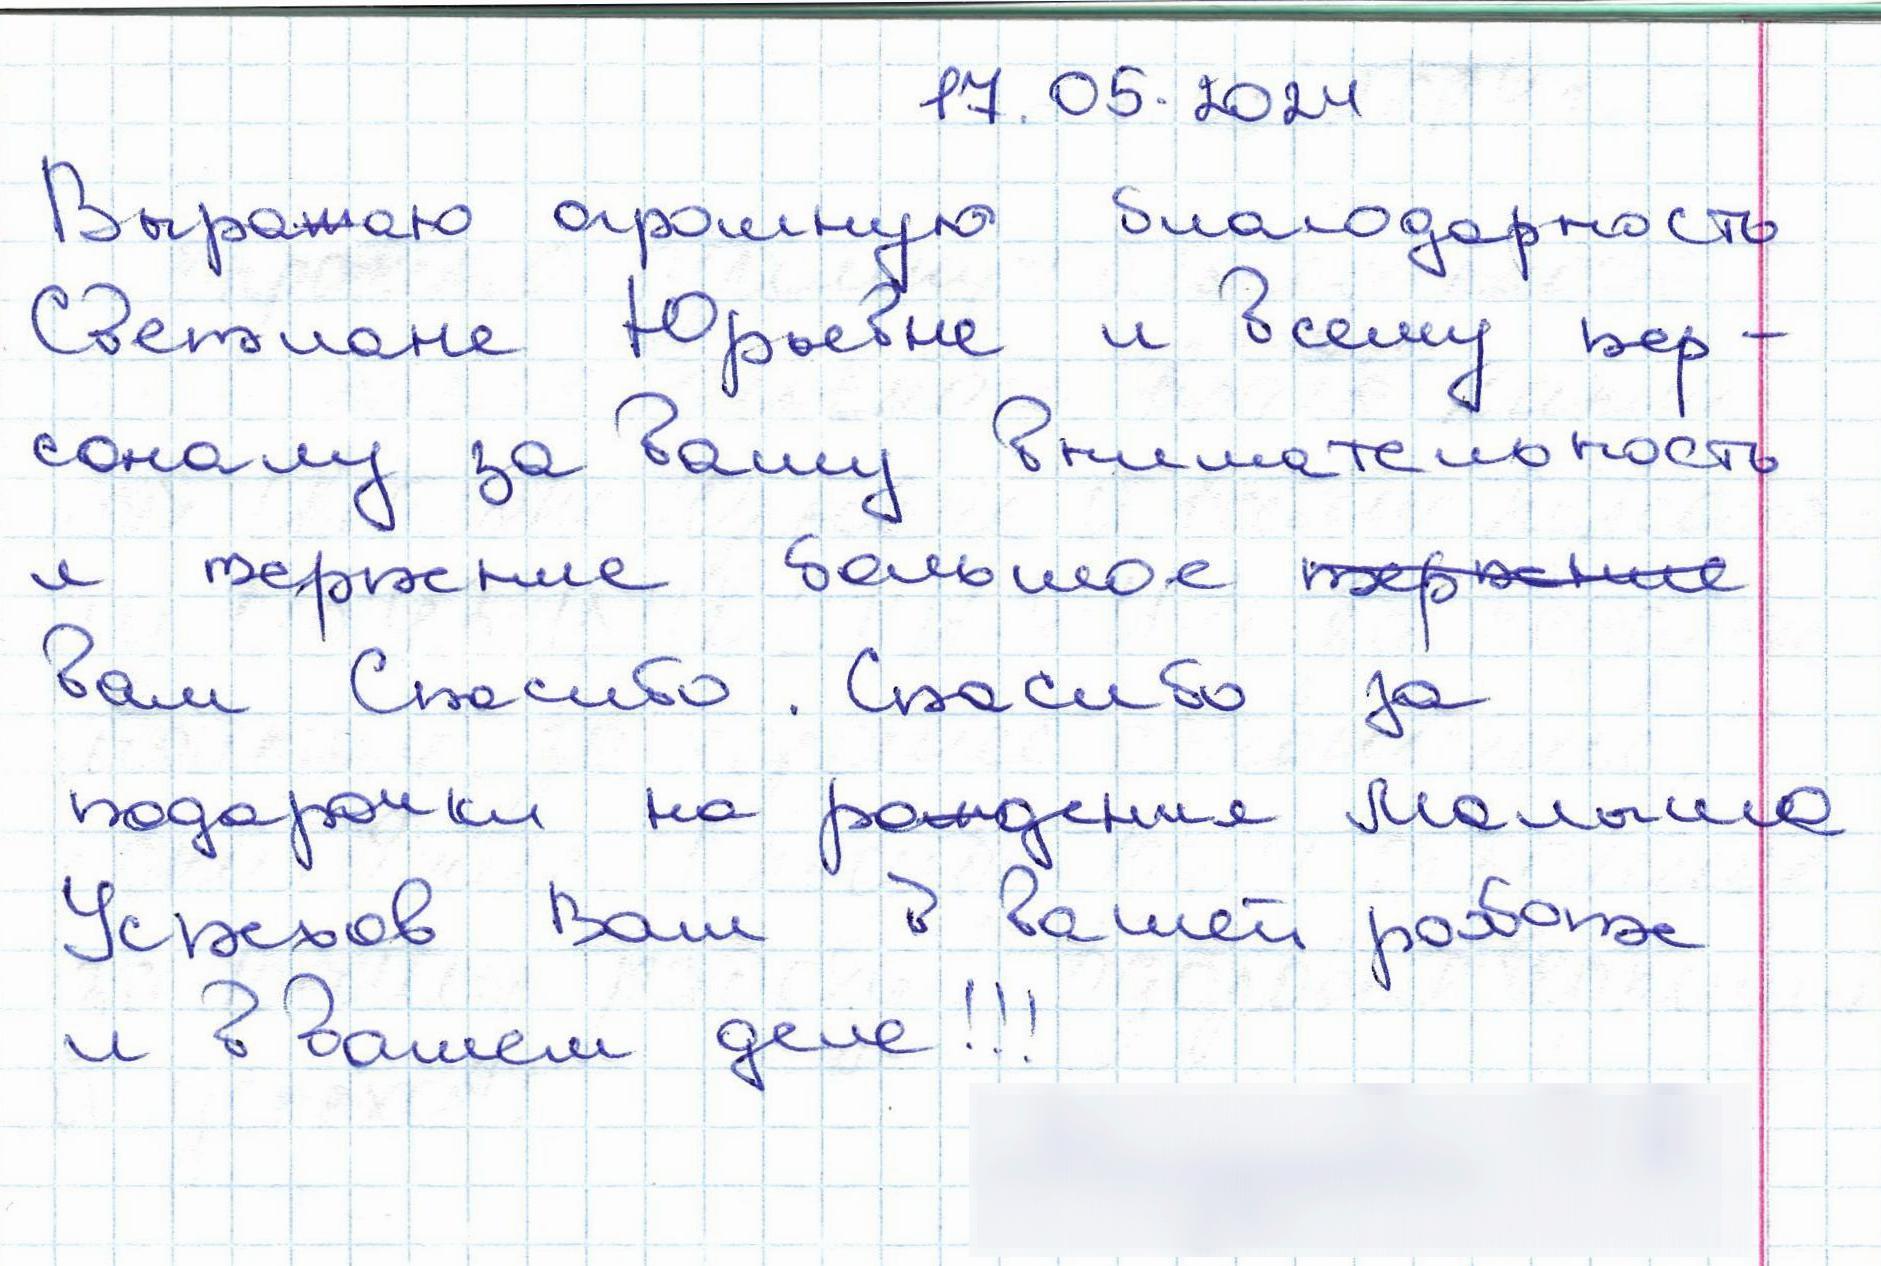 17.05.2024
Выражаю огромную благодарность
Светлане Юрьевне и всему пер-
соналу за вашу внимательность
и терпение большое терпение
вам Спасибо. Спасибо за
подарочки на рождения малыша
Успехов Вам в вашей работе
и в вашем деле!!!